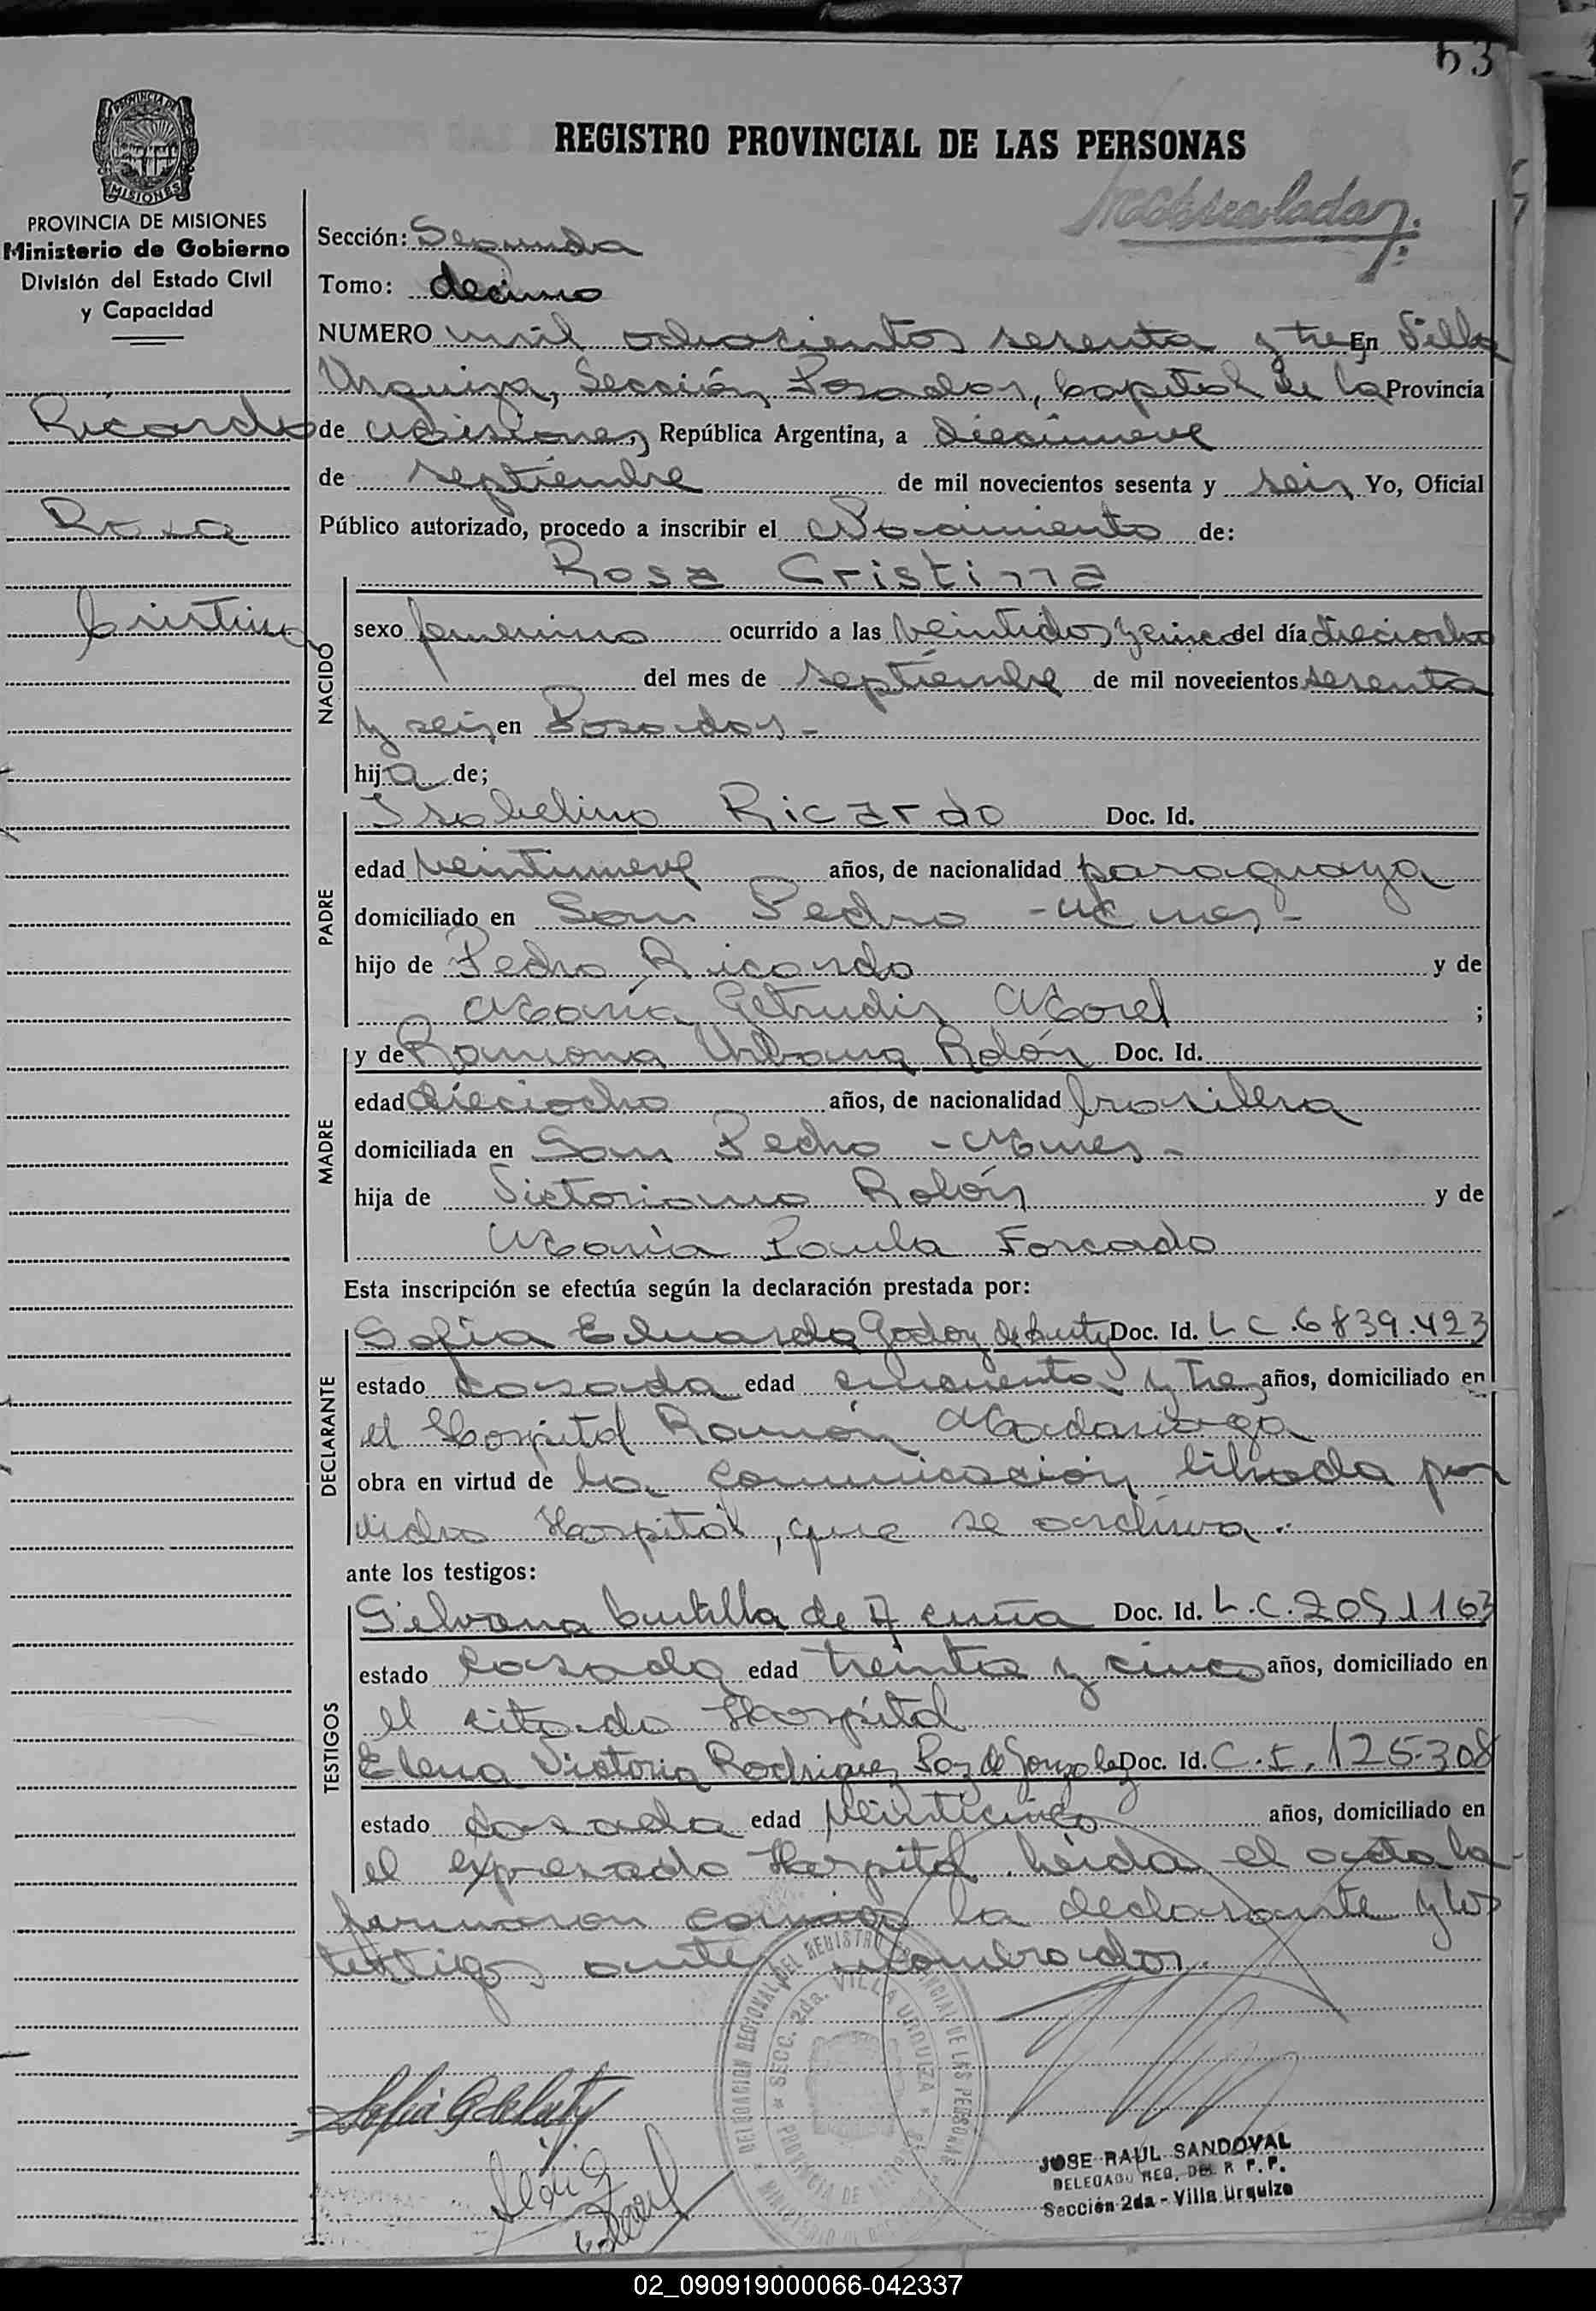 63
REGISTRO PROVINCIAL DE LAS PERSONAS
PROVINCIA DE
MISIONES
PROVINCIA DE MISIONES
Ministerio de Gobierno
División del Estado Civil
y Capacidad
Ricardo
Rosa
Cristina
Sección: Segunda
Tomo: decimo
NUMERO mil ochocientos sesenta y tres En Villa
Urquiza, Sección Posadas, Capital de la Provincia
de Misiones, República Argentina, a diecinueve
de septiembre de mil novecientos sesenta y seis Yo, Oficial
Público autorizado, procedo a inscribir el Nacimiento de:
Rosa Cristina
NACIDO
sexo femenino ocurrido a las veintidos y cinco del día dieciocho
del mes de septiembre de mil novecientos sesenta
y seis en Posadas -
hija de;
PADRE
Isabelino Ricardo Doc. Id.
edad veintinueve años, de nacionalidad paraguaya
domiciliado en San Pedro - Mnes -
hijo de Pedro Ricardo y de
María Getrudis Morel ;
MADRE
y de Ramona Urbana Rolón Doc. Id.
edad dieciocho años, de nacionalidad brasilera
domiciliada en San Pedro - Mnes -
hija de Victoriano Rolón y de
María Paula Forcado
Esta inscripción se efectúa según la declaración prestada por:
DECLARANTE
Sofía Eduarda Godoy de Doc. Id. L C. 6839.423
estado casada edad cincuenta y tres años, domiciliado en
el Hospital Ramón Madariaga
obra en virtud de la comunicación librada por
dicho Hospital, que se archiva.
ante los testigos:
TESTIGOS
Silvana de Acuña Doc. Id. L.C. 2051163
estado casada edad treinta y cinco años, domiciliado en
el citado Hospital
Elena Victoria Rodriguez Paz de Gonzalez Doc. Id. C.I. 125.308
estado casada edad veinticinco años, domiciliado en
el expresado Hospital. Leída el acta la
firmaron conmigo la declarante y los
testigos antes nombrados.
DELEGACION REGIONAL DEL REGISTRO PROVINCIAL DE LAS PERSONAS
SECC. 2da. VILLA URQUIZA
PROVINCIA DE MISIONES
JOSE RAUL SANDOVAL
DELEGADO REG. DEL R. P. P.
Sección 2da - Villa Urquiza
02_090919000066-042337